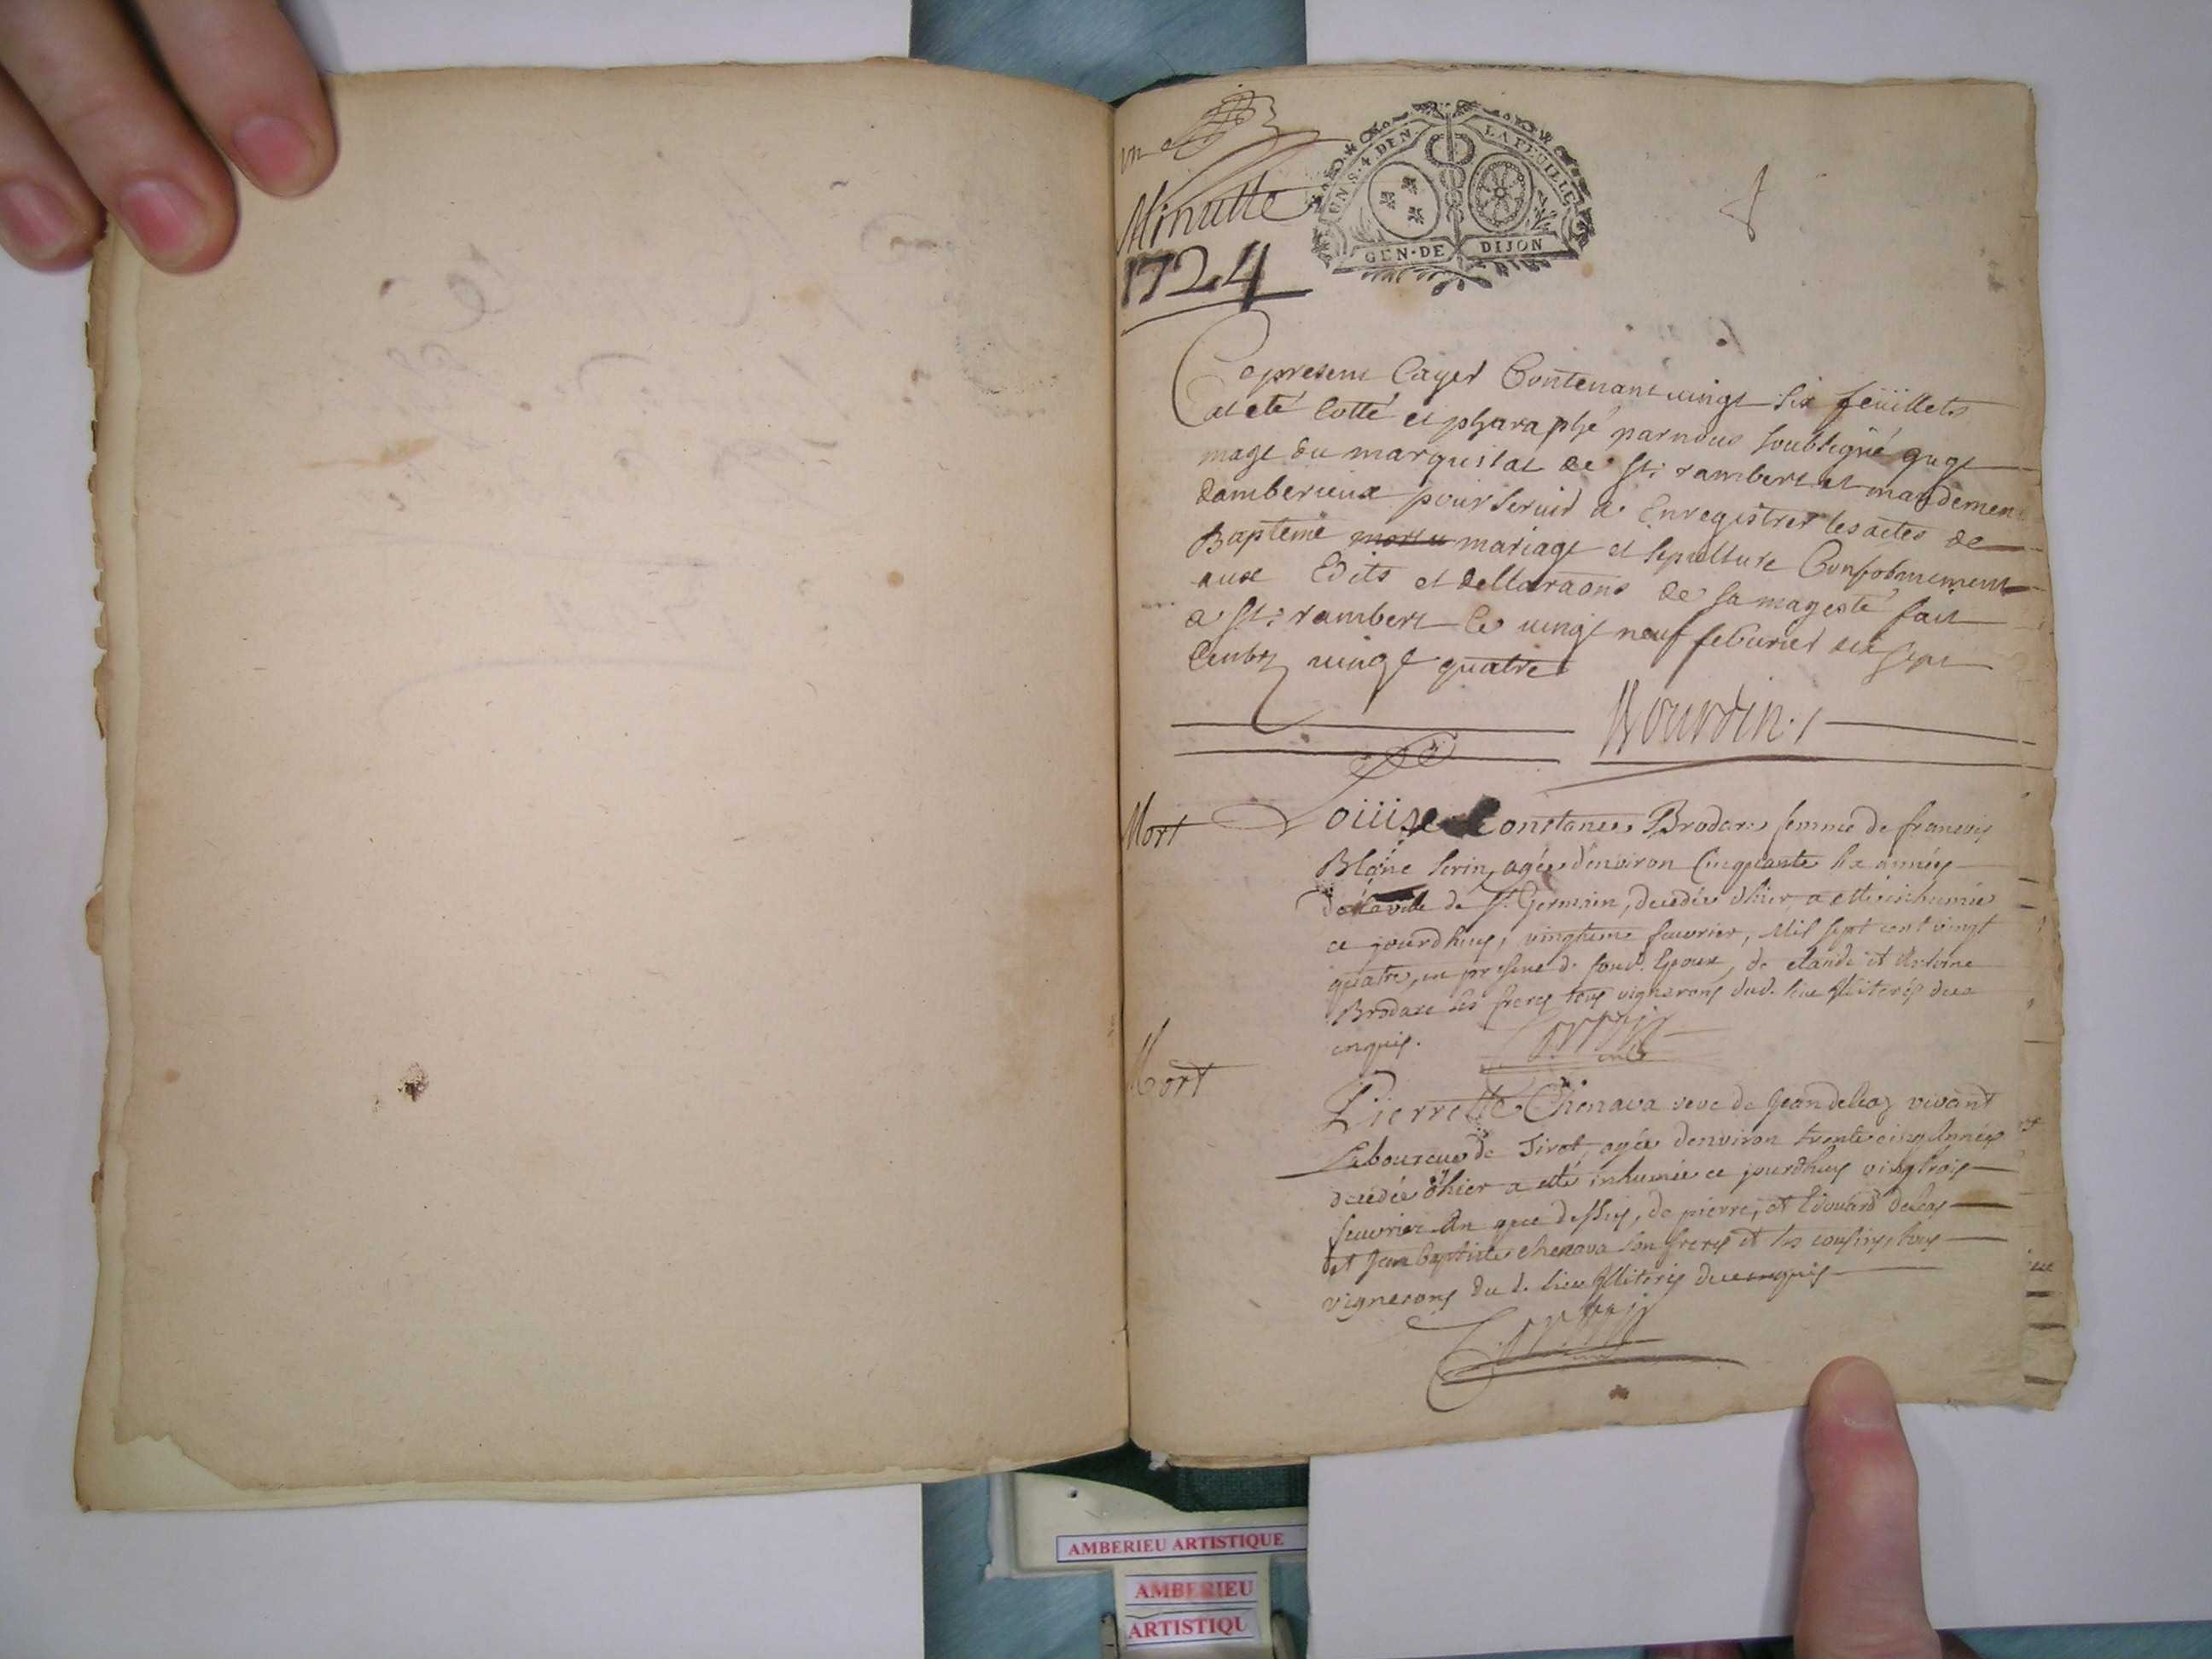 un
Minutte
1724
UN S. 4 DEN. LA FEUILLE
GEN. DE DIJON
Ce present Cayer Contenant vingt six feüillets
at eté Cotté et pharaphé par nous soubsigné juge
mage du marquisat de St: rambert et mandemen
damberieux pour servir a Enregistrer les actes de
Bapteme mariage et sepulture Conformement
aux Edits et dellaraons de sa magesté fait
a St: rambert le vingt neuf feburier dix sept
Centz vingt quatre
Mort
Loüise Constance Brodare femme de francois
Blanc Serin, agée d'environ Cinquante six années
de la ville de St. Germain, decedée d'hier, a etté inhumée
ce jourdhuy, vingtieme feuvrier, Mil sept cent vingt
quatre, en presence de soud. Epoux, de claude et Antoine
Brodare ses freres tous vignerons dud. lieu Illiterés deüe
enquis.
Mort
Pierrette Chenava veve de Jean deleaz vivant
Laboureur de Tiret, agée denviron trente cinq Années
decedée d'hier a etté inhumée ce jourdhuy vingtrois
feuvrier An que dessus, de pierre, et Edouard deleaz
et Jean baptiste chenava son frere et ses cousins, tous
vignerons du d. lieu Illiterés deue enquis
AMBERIEU ARTISTIQUE
AMBERIEU
ARTISTIQU